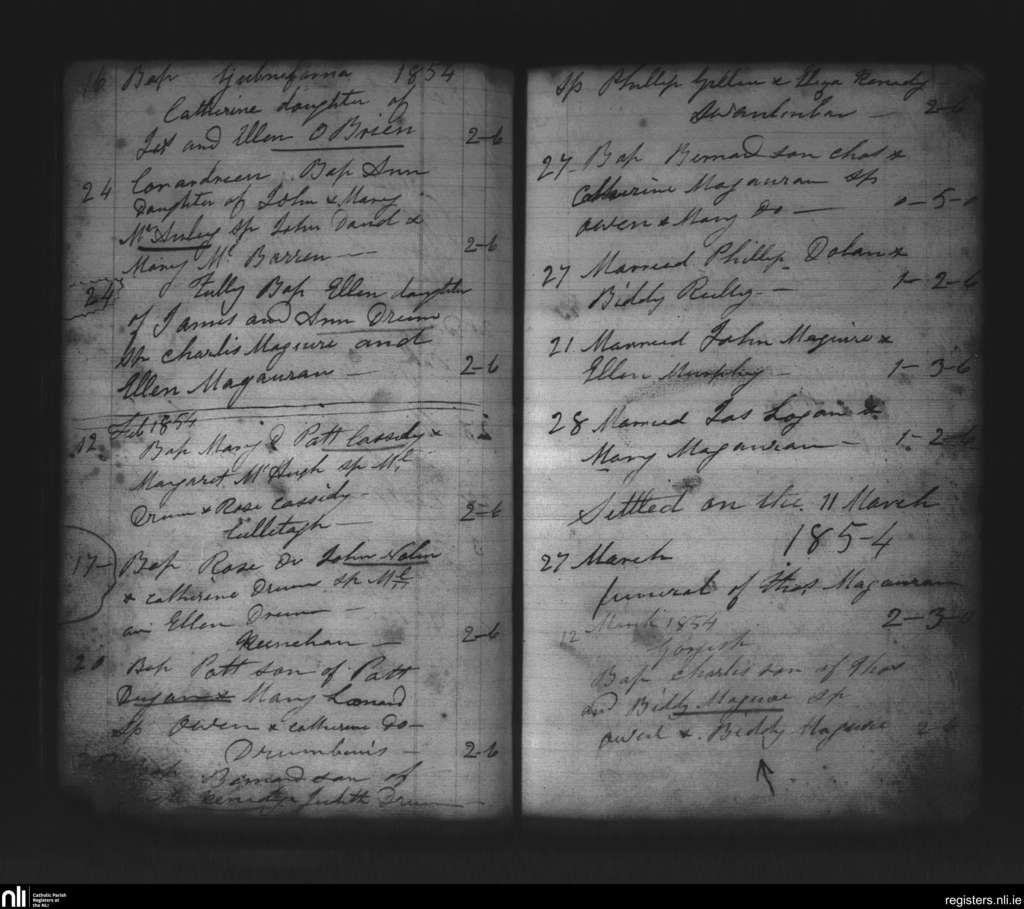 16 Bap Gubnafarna 1854
Catherine daughter of
Jas and Ellen O Brien 2-6
24 Conandreen Bap Ann
Daughter of John & Mary
Mc Auley Sp John David &
Mary Mc Barren 2-6
24 Tully Bap Ellen daughter
of James and Ann Drum
Sp Charlis Magaure and
Ellen Magauran 2-6
Feb 1854
12 Bap Mary D Patt Cassidy &
Margaret McHugh Sp Ml
Drum & Rose Cassidy
Cullitagh 2-6
17 Bap Rose Dr John Nolin
& Catherine Drum Sp Ml
an Ellen Drum
Keenehan 2-6
20 Bap Patt son of Patt
Dugan & Mary Leonard
Sp Owen & Catherine do
Drumbinis 2-6
Bernard son of
Kenedy Judith Drum
Sp Phillip & Eliza Kenedy
Swanlinbar 2-6
27 Bap Bernard son Chas &
Catherine Magauran Sp
Owen & Mary Do 0-5-0
27 Married Phillip Dolan &
Biddy Reilly 1-2-6
21 Married John Maguire &
Ellen Murphy 1-3-6
28 Married Jas Logan &
Mary Magauran 1-2-6
Settled on the 11 March
1854
27 March
funeral of Thos Magauran
2-3-0
12 March 1854
Bap Charlis son of Thos
and Biddy Maguire Sp
Owen & Biddy Maguire 2-6
nli Catholic Parish
Registers at
the NLI
registers.nli.ie